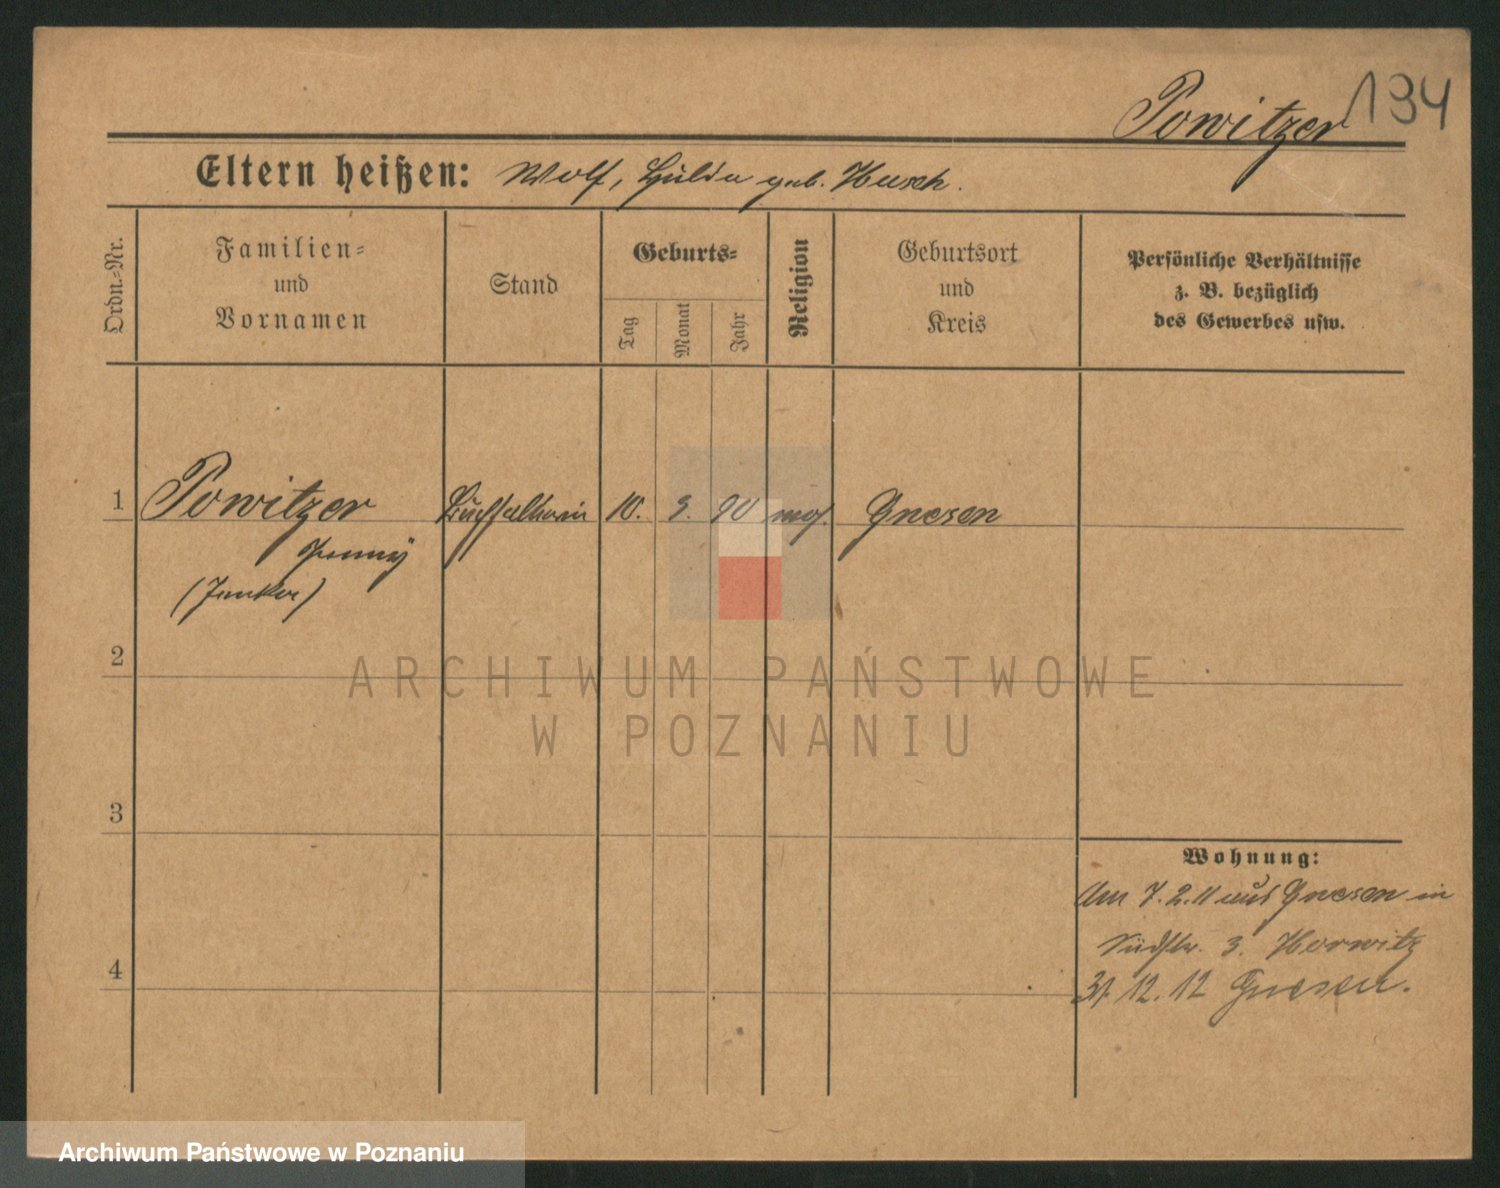 134
Powitzer
Eltern heißen: Wolf, Hulda geb. Husch.
Ordn.-Nr.
Familien-
und
Vornamen
Stand
Geburts-
Tag
Monat
Jahr
Religion
Geburtsort
und
Kreis
Persönliche Verhältnisse
z. B. bezüglich
des Gewerbes usw.
1 Powitzer 10. 9. 90 mos. Gnesen
Jenny
2
3
4
Wohnung:
Am 7.2.11 aus Gnesen in
Südstr. 3. Horwitz
31.12.12 Gnesen.
ARCHIWUM PAŃSTWOWE
W POZNANIU
Archiwum Państwowe w Poznaniu